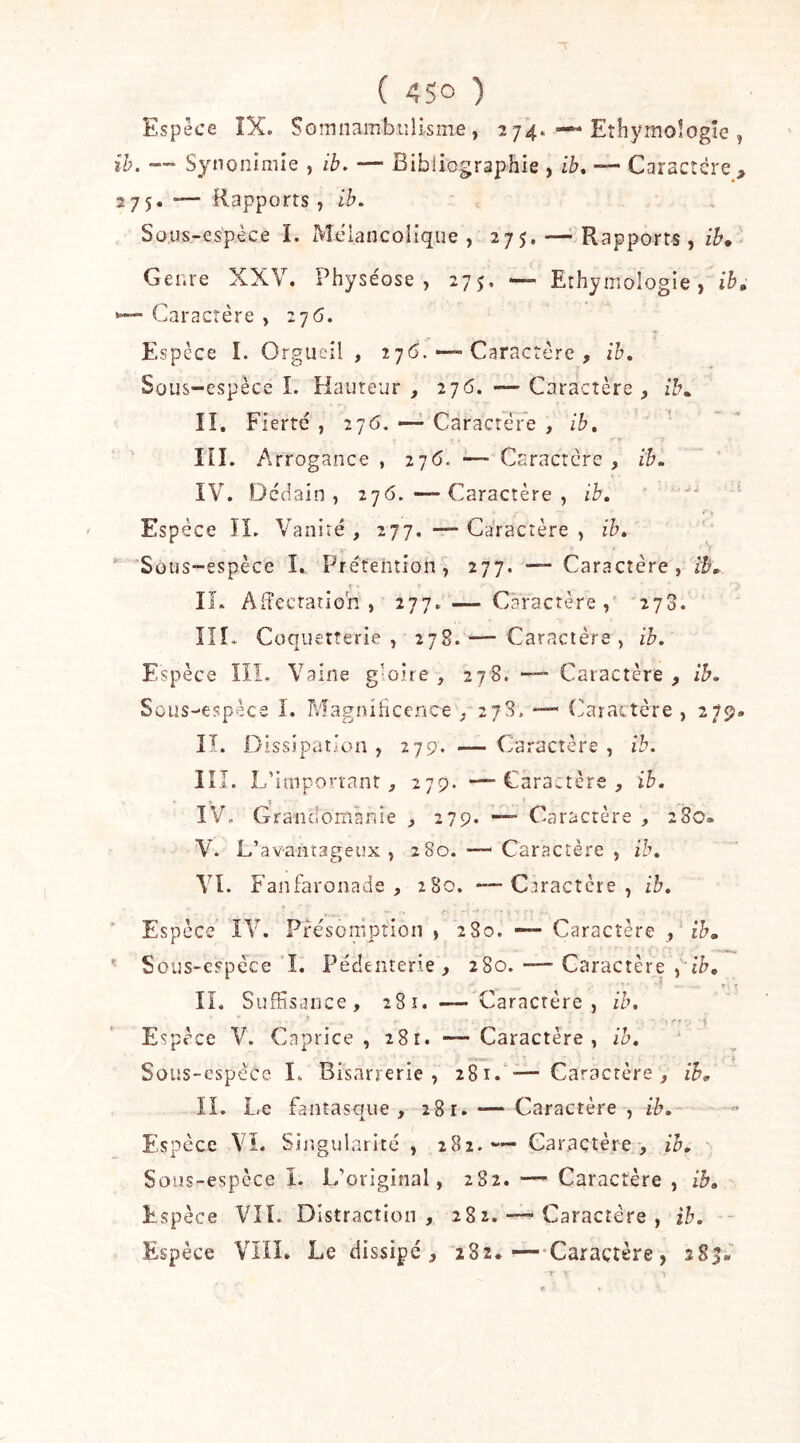 ( 450 )
Espèce IX. Somnambulisme, 274. — Ethymologie,
ib. — Synonimie, ib. — Bibliographie, ib. — Caractère,
275. — Rapports, ib.
Sous-espèce I. Mélancolique, 275. — Rapports, ib.
Genre XXV. Physéose, 275. — Ethymologie, ib.
— Caractère, 276.
Espèce I. Orgueil, 276. — Caractère, ib.
Sous-espèce I. Hauteur, 276. — Caractère, ib.
II. Fierté, 276. — Caractère, ib.
III. Arrogance, 276. — Caractère, ib.
IV. Dédain, 276. — Caractère, ib.
Espèce II. Vanité, 277. — Caractère, ib.
Sous-espèce I. Prétention, 277. — Caractère, ib.
II. Affectation, 277. — Caractère, 278.
III. Coquetterie, 278. — Caractère, ib.
Espèce III. Vaine gloire, 278. — Caractère, ib.
Sous-espèce I. Magnificence, 278. — Caractère, 279.
II. Dissipation, 279. — Caractère, ib.
III. L'important, 279. — Caractère, ib.
IV. Grandomanie, 279. — Caractère, 280.
V. L'avantageux, 280. — Caractère, ib.
VI. Fanfaronade, 280. — Caractère, ib.
Espèce IV. Présomption, 280. — Caractère, ib.
Sous-espèce I. Pédenterie, 280. — Caractère, ib.
II. Suffisance, 281. — Caractère, ib.
Espèce V. Caprice, 281. — Caractère, ib.
Sous-espèce I. Bisarrerie, 281. — Caractère, ib.
II. Le fantasque, 281. — Caractère, ib.
Espèce VI. Singularité, 282. — Caractère, ib.
Sous-espèce I. L'original, 282. — Caractère, ib.
Espèce VII. Distraction, 282. — Caractère, ib.
Espèce VIII. Le dissipé, 282. — Caractère, 283.